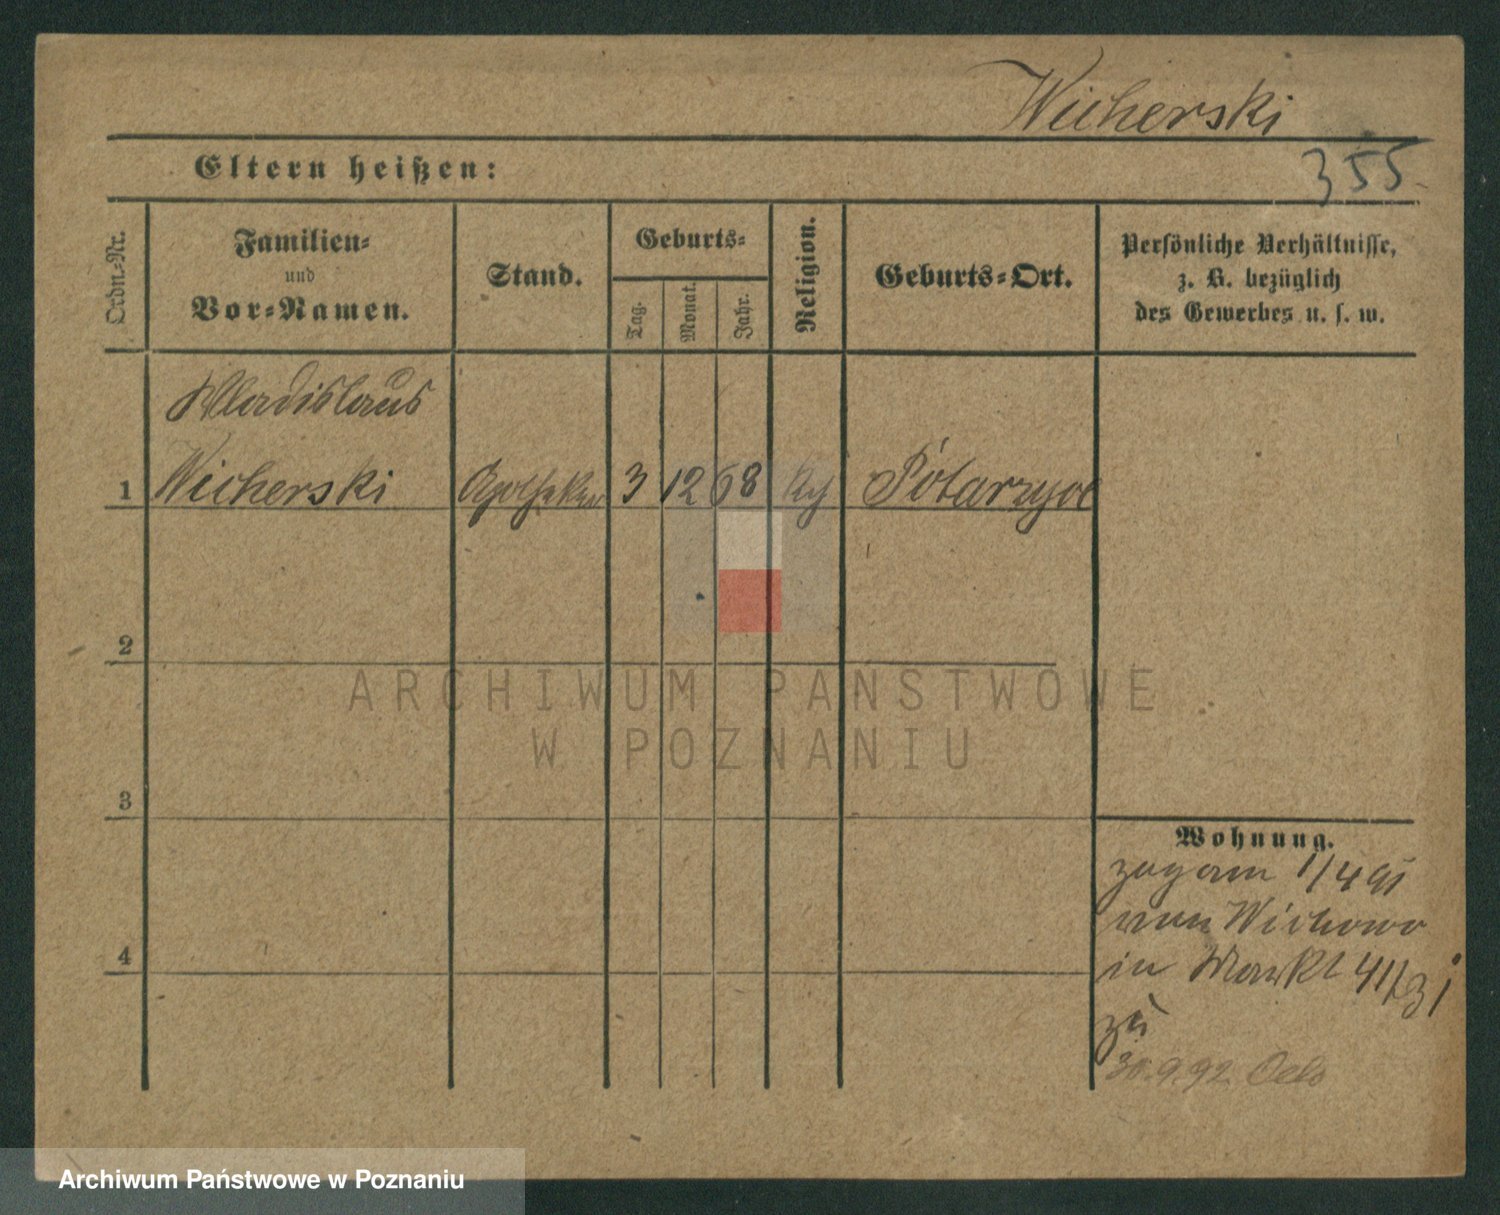 Wicherski
355
Eltern heißen:
Ordn-Nr.
Familien-
und
Vor-Namen.
Stand.
Geburts-
Tag.
Monat.
Jahr.
Religion.
Geburts-Ort.
Persönliche Verhältnisse,
z. B. bezüglich
des Gewerbes u. s. w.
Wladislaus
1 Wicherski Apotheker 3 12 68
2
3
4
Wohnung.
zog am 1/4 91
von
in Markt 41/
zu
30.9.92. Oels
ARCHIWUM PAŃSTWOWE
W POZNANIU
Archiwum Państwowe w Poznaniu